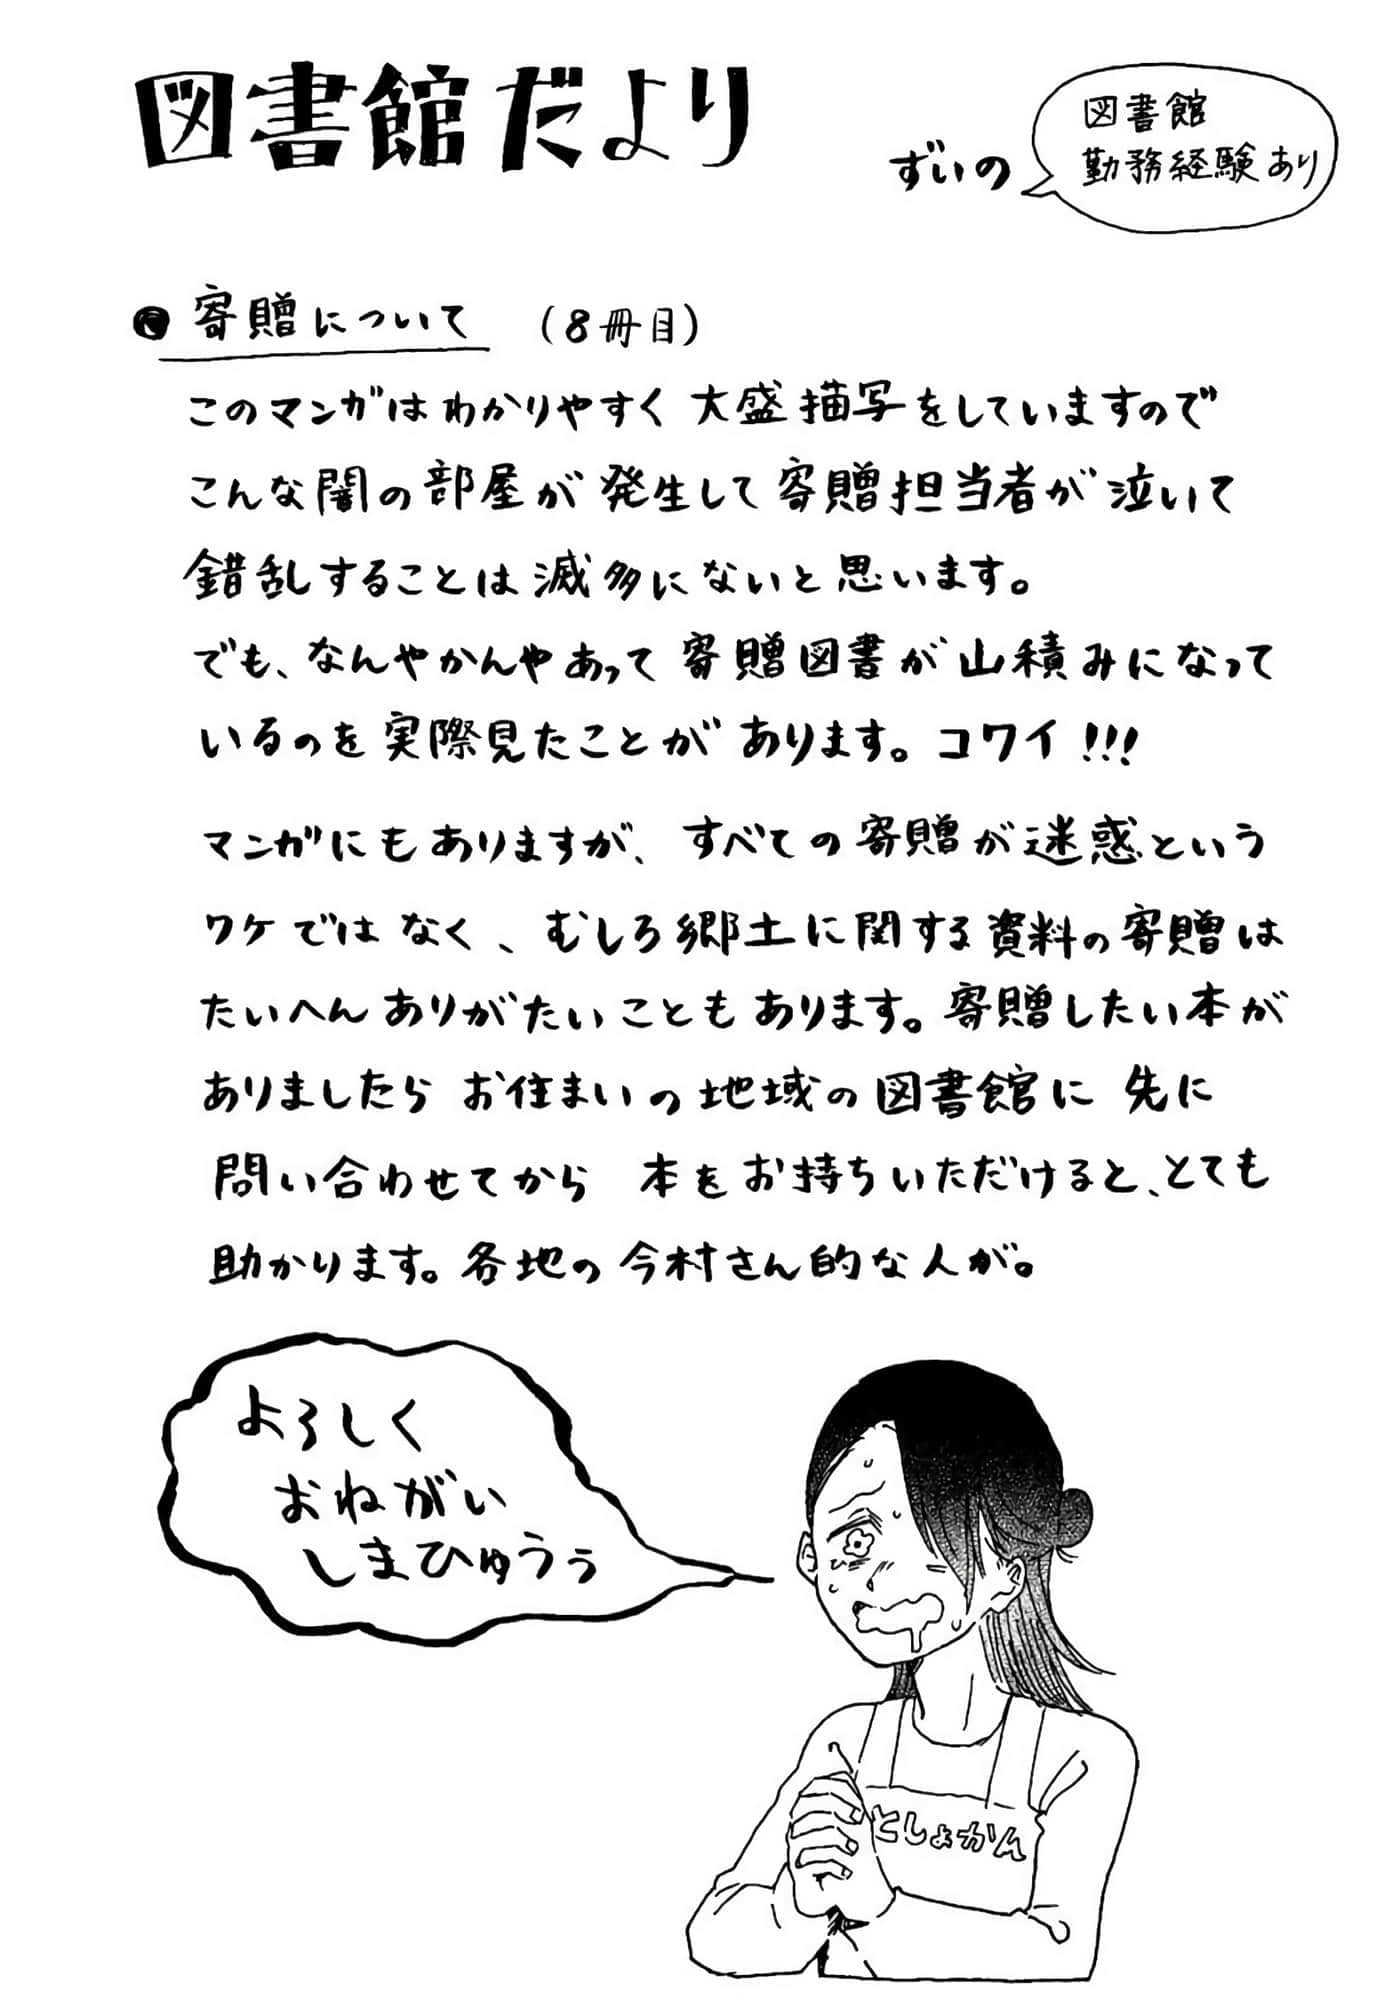 図書館だより
ずいの
図書館
勤務経験あり
寄贈について (8冊目)
このマンガはわかりやすく大盛描写をしていますので
こんな闇の部屋が発生して寄贈担当者が泣いて
錯乱することは滅多にないと思います。
でも、なんやかんやあって寄贈図書が山積みになって
いるのを実際見たことがあります。コワイ!!!
マンガにもありますが、すべての寄贈が迷惑という
ワケではなく、むしろ郷土に関する資料の寄贈は
たいへんありがたいこともあります。寄贈したい本が
ありましたらお住まいの地域の図書館に先に
問い合わせてから 本をお持ちいただけると、とても
助かります。各地の今村さん的な人が。
よろしく
おねがい
しまひゅうぅ
としょかん